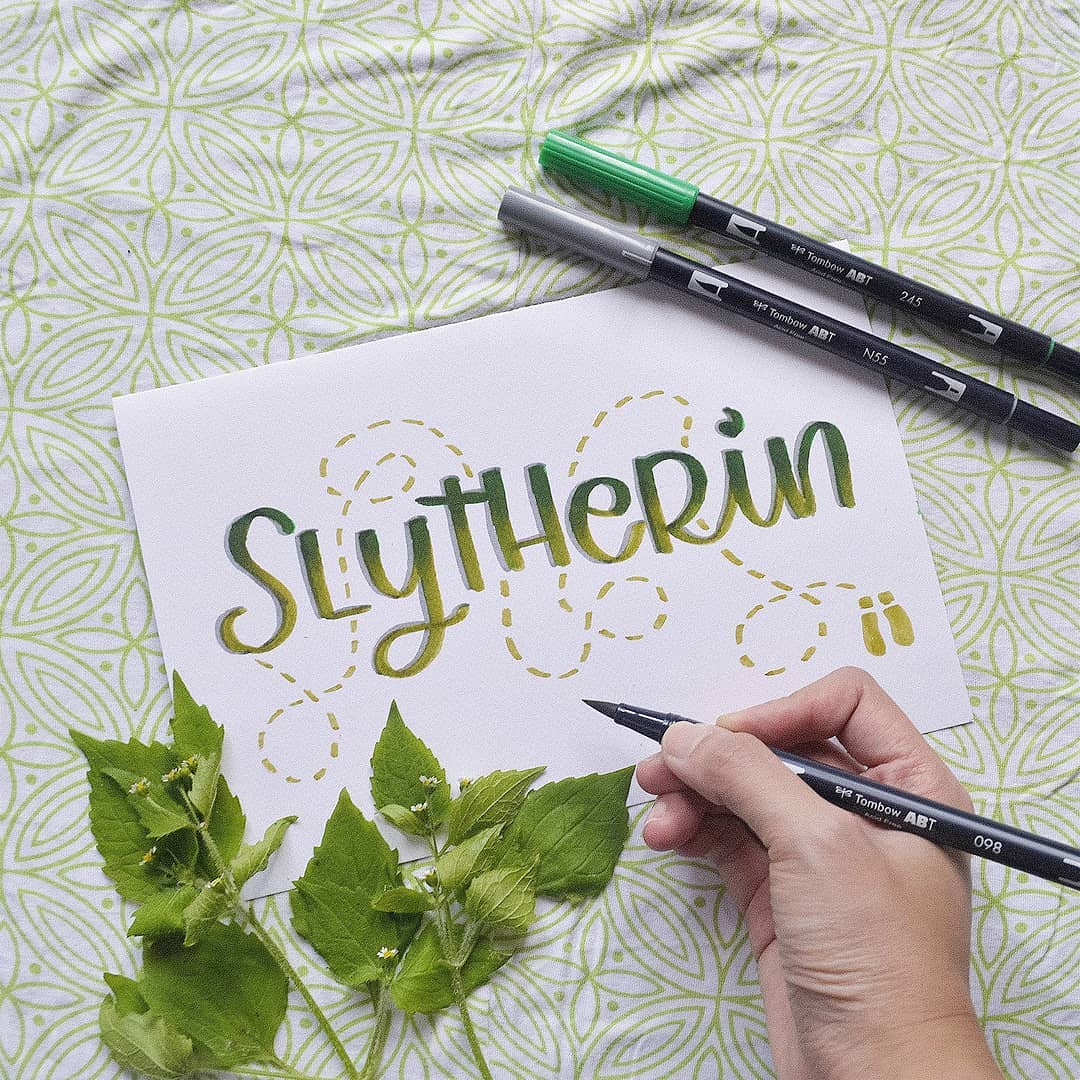 Tombow ABT
Acid Free
245
Tombow ABT
Acid Free
N55
SLytHeRin
Tombow ABT
Acid Free
098